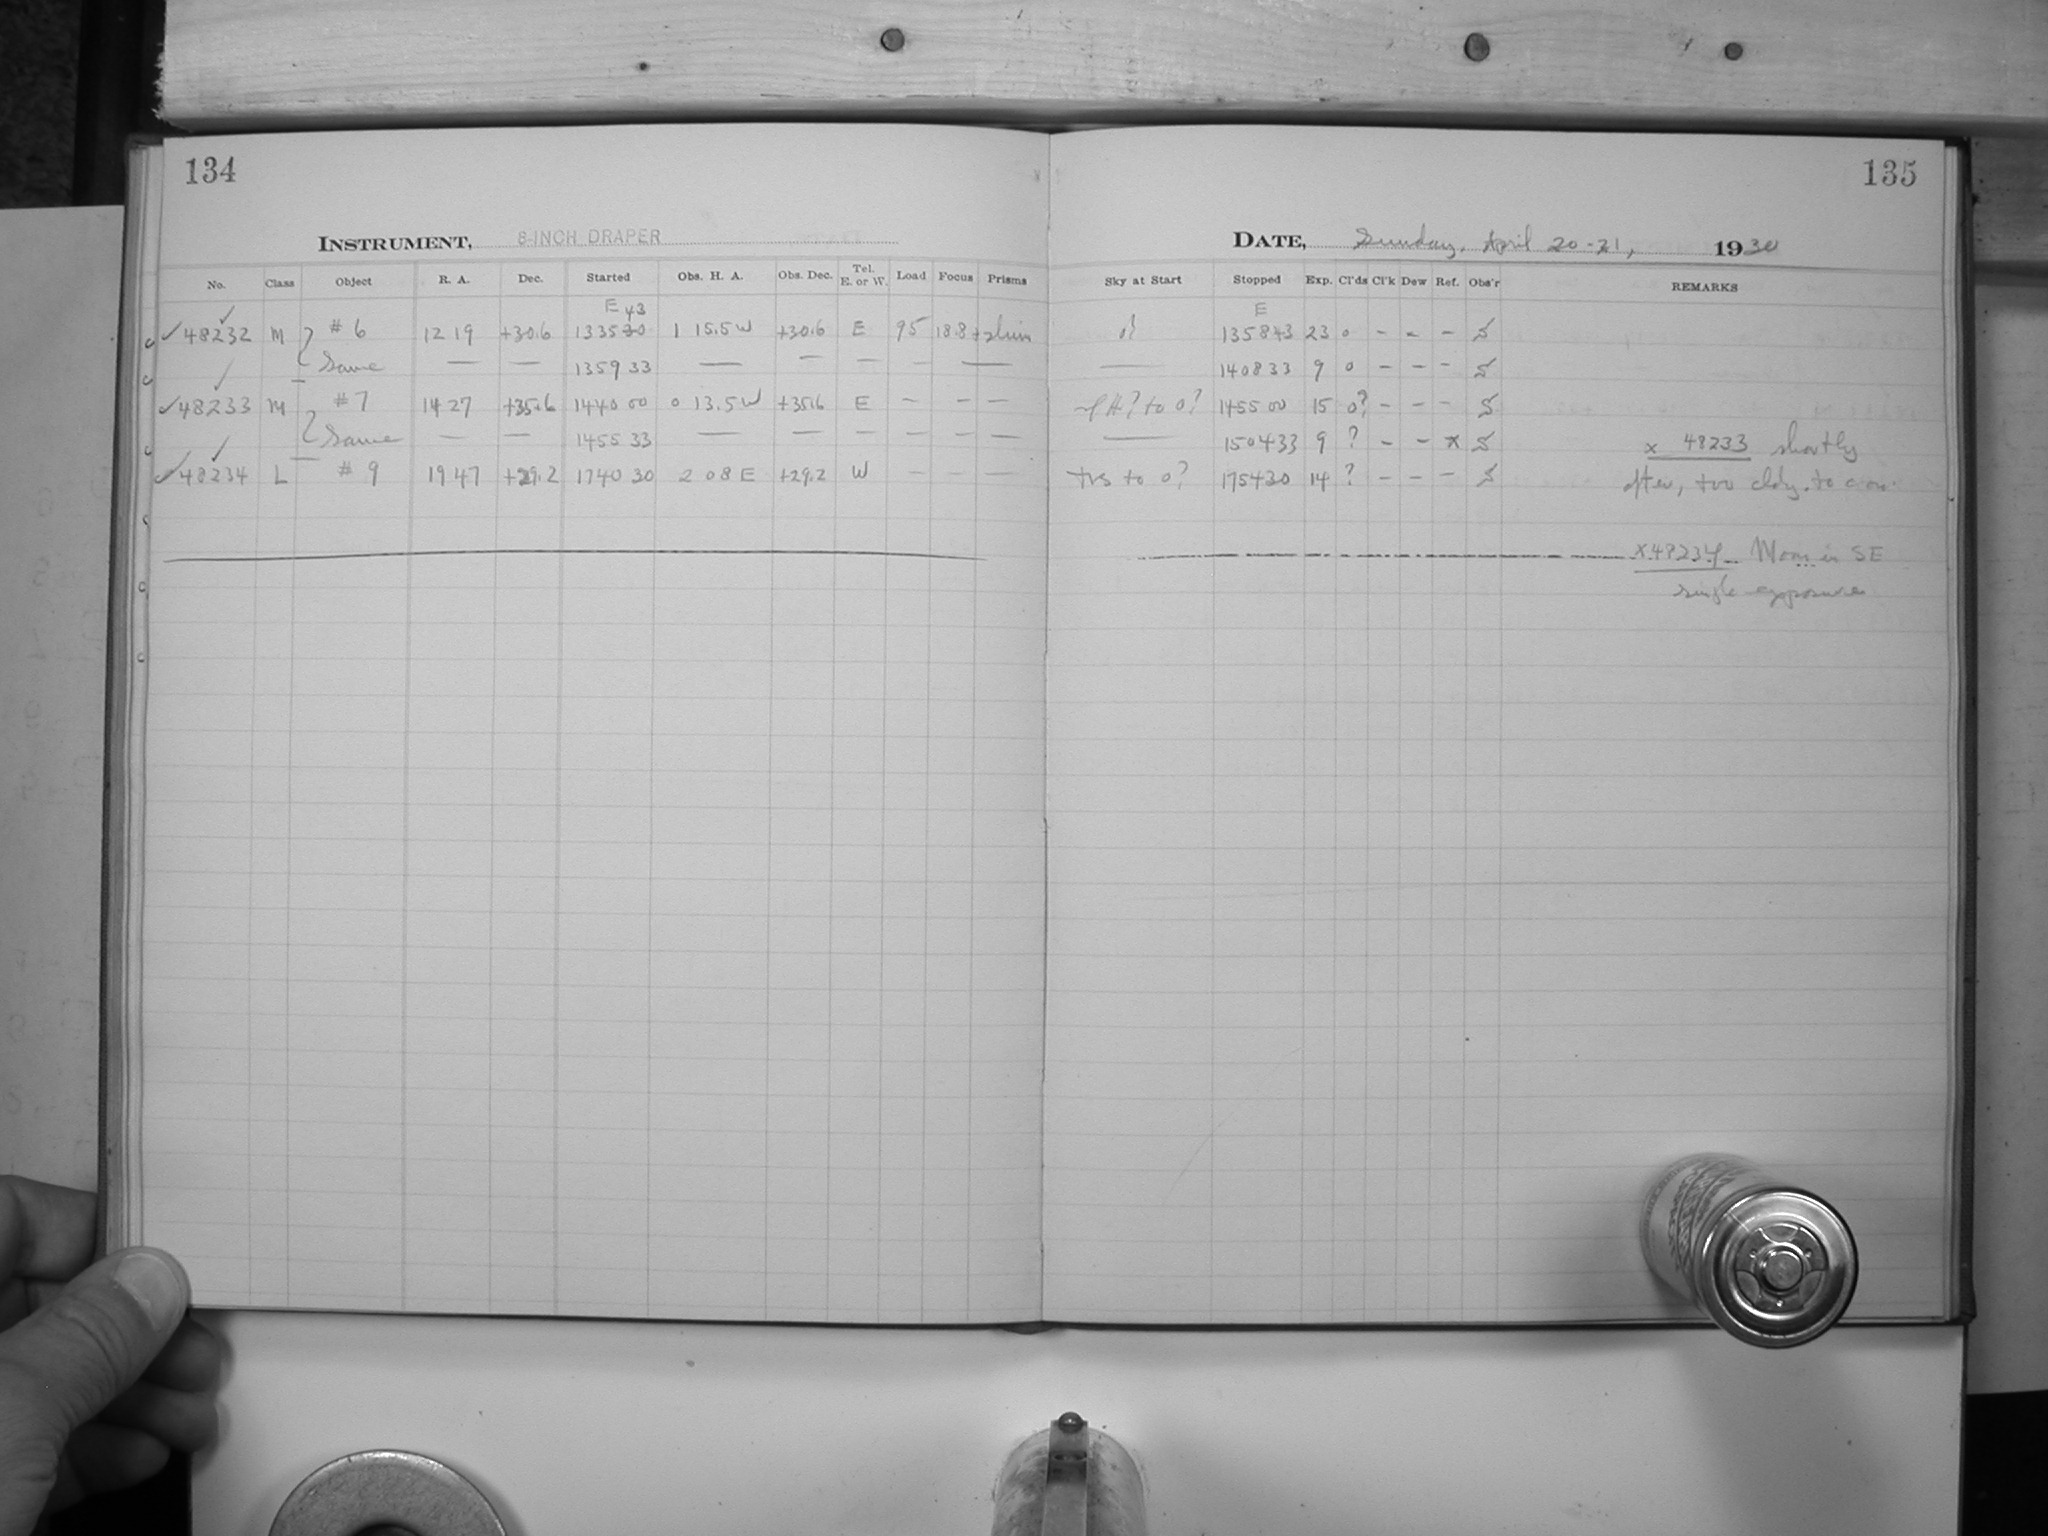 134
INSTRUMENT, 8-INCH DRAPER
No. Class Object R. A. Dec. Started Obs. H. A. Obs. Dec. Tel. E. or W. Load Focus Prisms
E 43
✓48232 M #6 12 19 +30.6 1335 30 1 15.5 W +30.6 E 95 18.8
Same — — 1359 33 — — — — —
✓48233 M #7 14 27 +35.6 1440 00 0 13.5 W +35.6 E — — —
Same — — 1455 33 — — — — — —
✓48234 L #9 19 47 +29.2 1740 30 2 08 E +29.2 W — — —
135
DATE, Sunday, April 20-21, 1930
Sky at Start Stopped Exp. Cl'ds Cl'k Dew Ref. Obs'r REMARKS
E
1358 43 23 0 - - -
— 1408 33 9 0 - - -
to 0? 1455 00 15 0? - - -
— 1504 33 9 ? - - x x 48233 shortly
to 0? 1754 30 14 ? - - - after, too cldy. to
x 48234 Moon in SE
single exposure